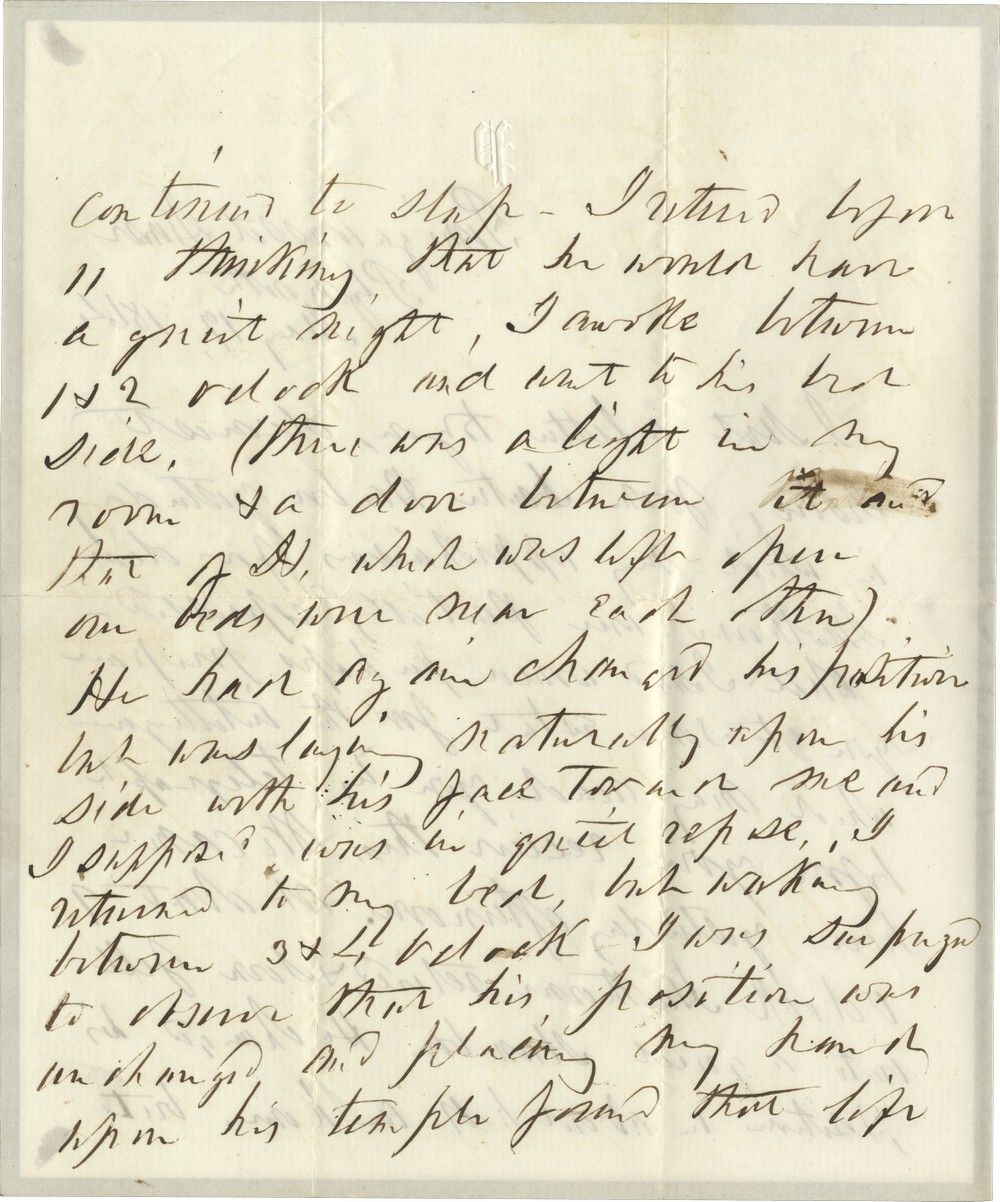 continued to sleep - I retired before
11 thinking that he would have
a quiet night, I awoke between
1 & 2 oclock and went to his bed
side, (there was a light in my
room & a door between it and
that of H. which was left open
our beds were near each other)
He had again changed his position
but was laying naturally upon his
side with his face toward me and
I supposed was in quiet repose, I
returned to my bed, but waking
between 3 & 4 oclock I was surprized
to observe that his position was
unchanged and placing my hand
upon his temple found that life